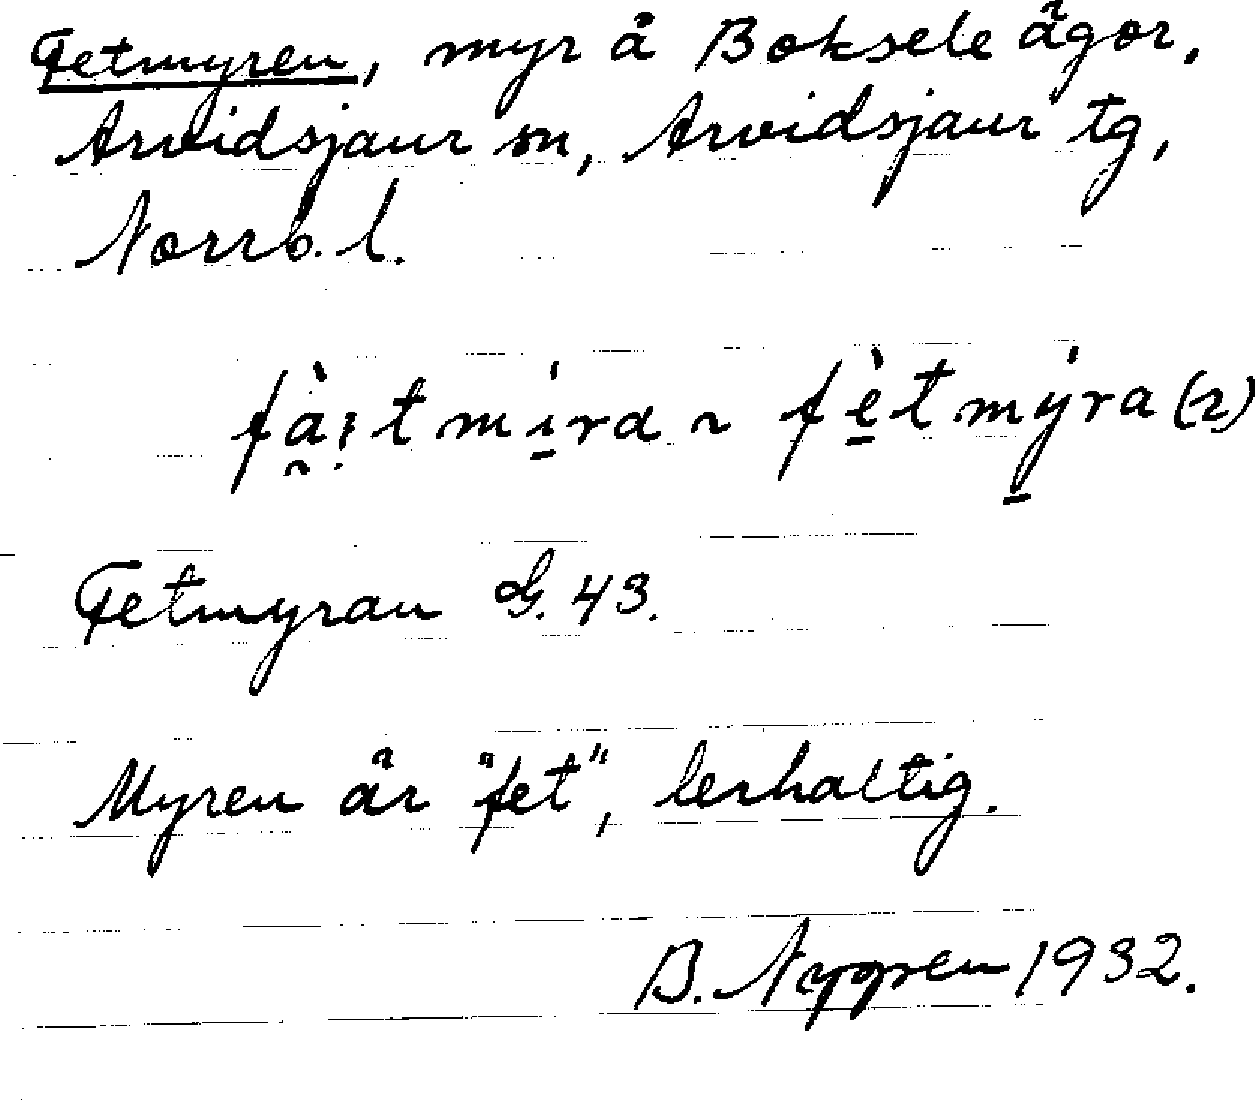 Fetmyren, myr åBoksele ägor,
Arvidsjaur sn, Arvidsjaur tg,
Norrb. l.
fà̰i̯tmí̠ra ~ fè̠tmý̠ra (2)
Fetmyran G. 43.
Myren är "fet", lerhaltig.
B. Nygren 1932.